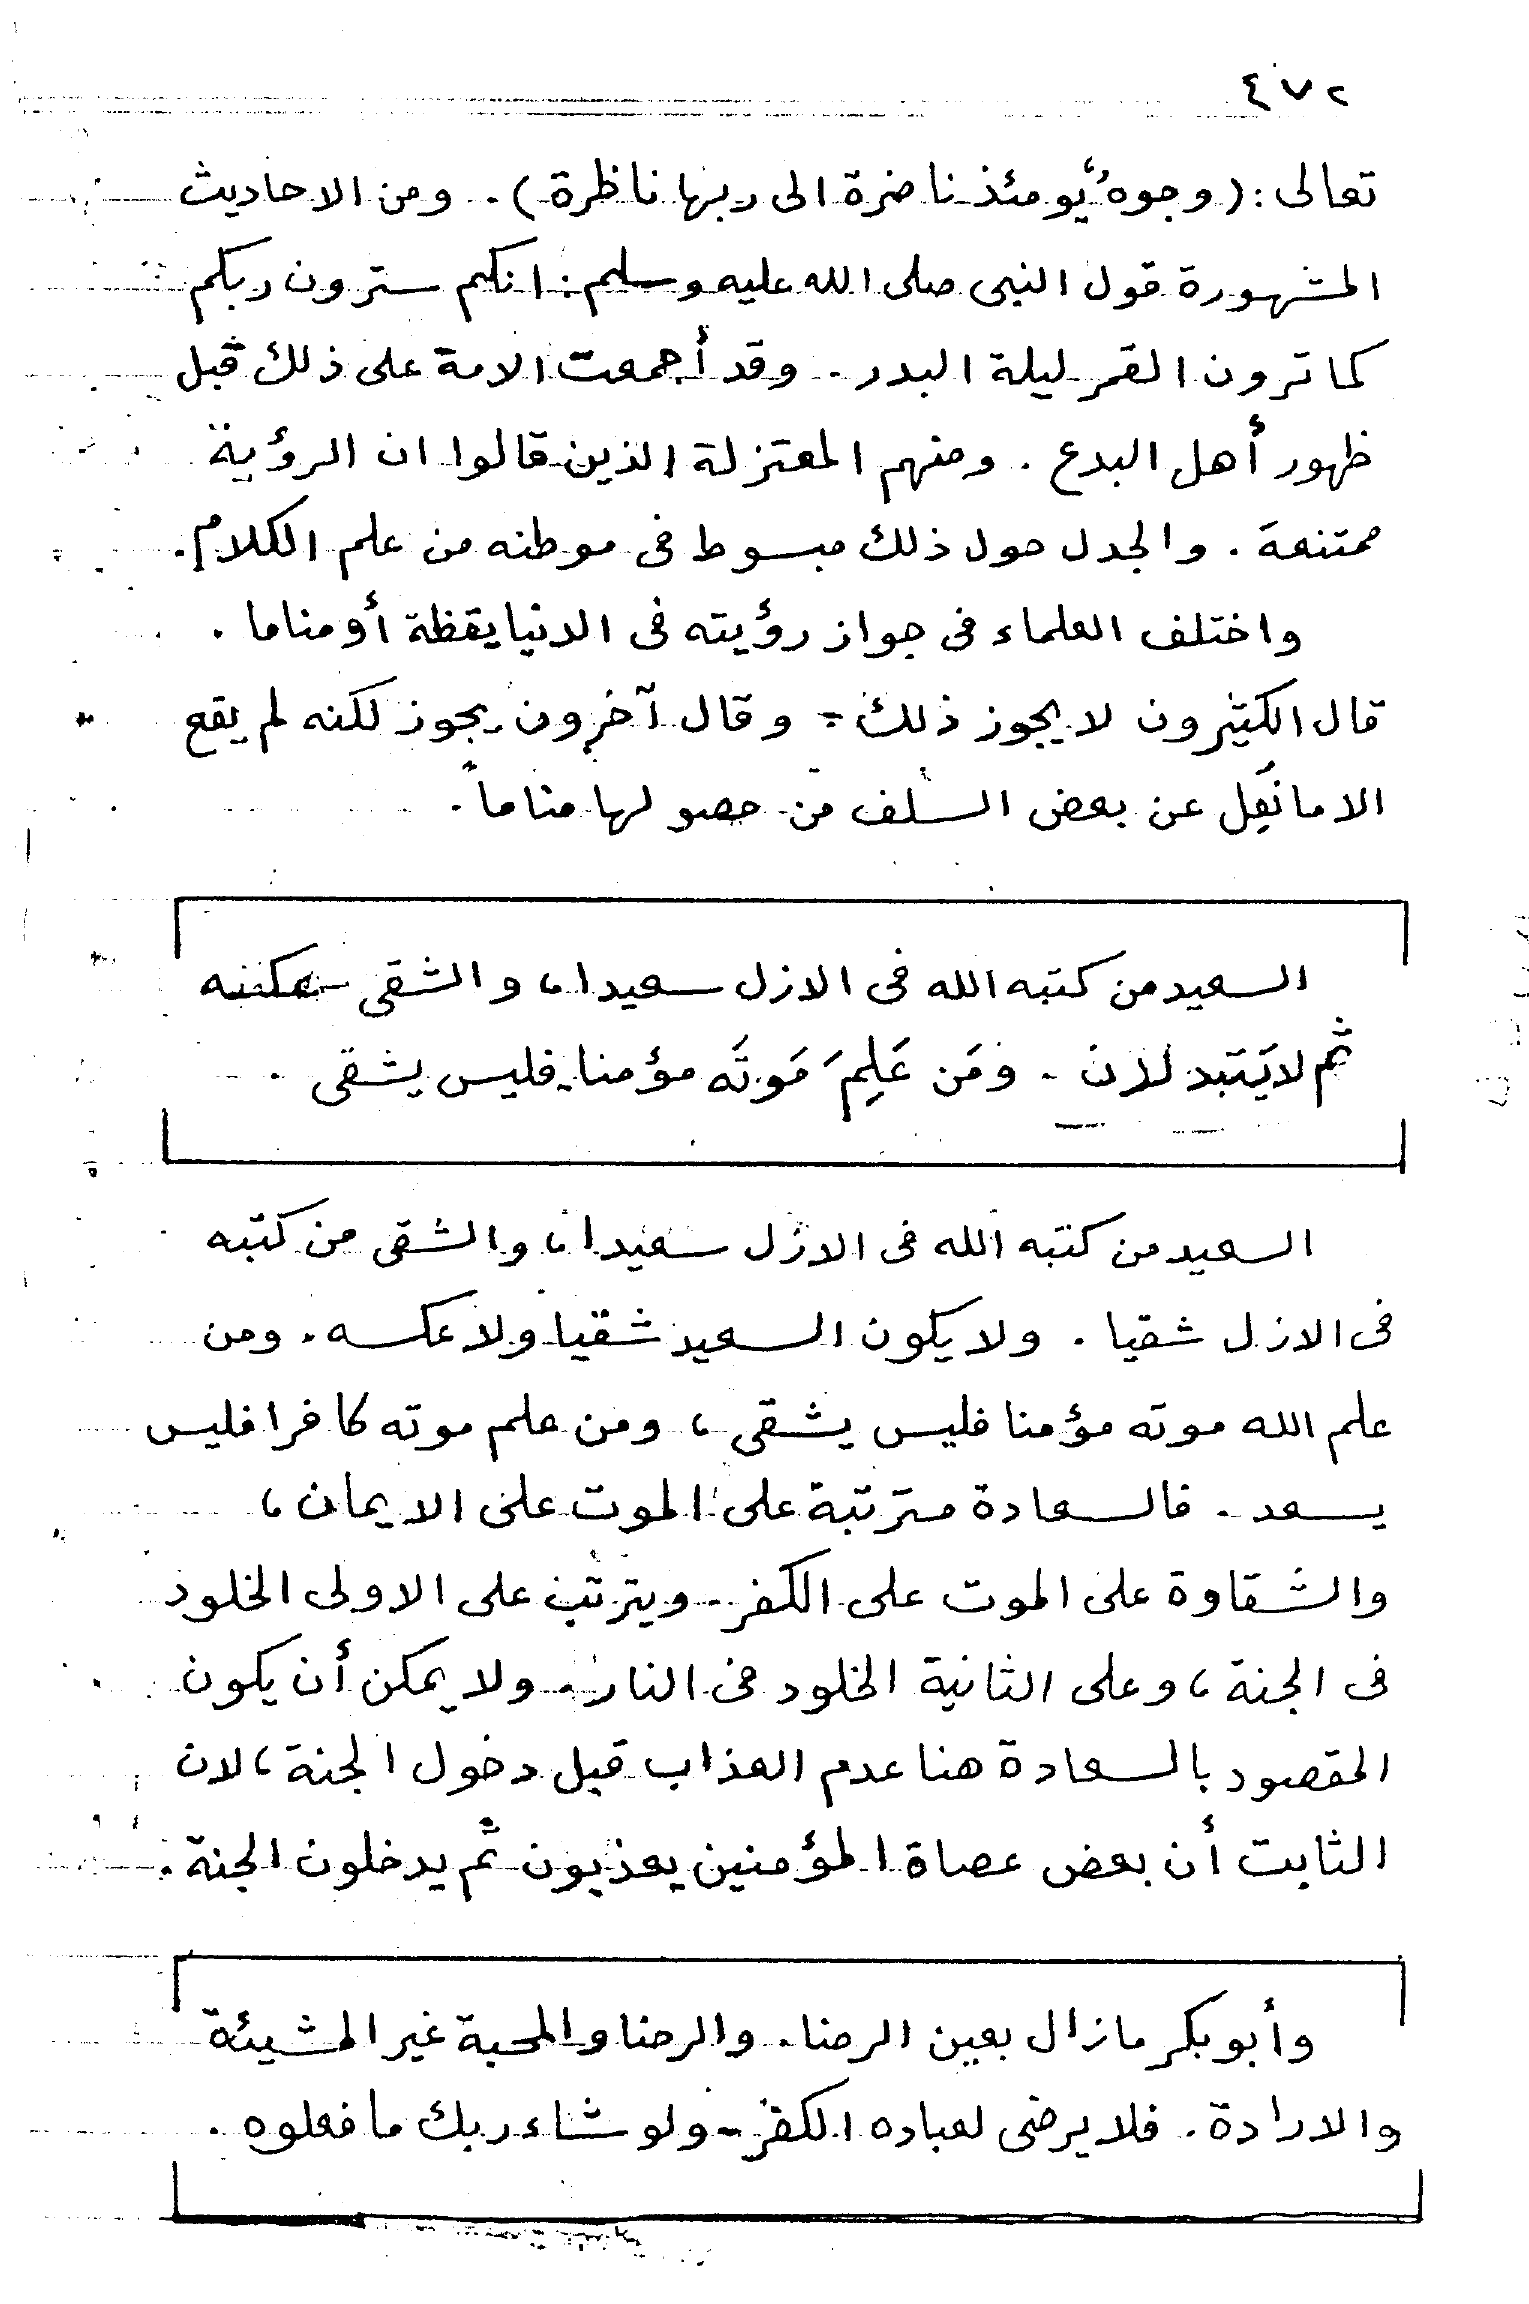 ٤٧٢
تعالى : ( وجوهٌ يومئذ ناضرة الى ربها ناظرة ) . ومن الاحاديث
المشهورة قول النبى صلى الله عليه وسلم : انكم سترون ربكم
كما ترون القمر ليلة البدر . وقد أجمعت الامة على ذلك قبل
ظهور أهل البدع . ومنهم المعتزلة الذين قالوا ان الرؤية
ممتنعة . والجدل حول ذلك مبسوط فى موطنه من علم الكلام .
واختلف العلماء فى جواز رؤيته فى الدنيا يقظة أو مناما .
قال الكثيرون لا يجوز ذلك . وقال آخرون يجوز لكنه لم يقع
الا ما نُقِل عن بعض السلف من حصولها مناماً .
السعيد من كتبه الله فى الازل سعيدا ، والشقى عكسه
ثم لا يَتَبدلان . ومَن عَلِمَ مَوتَه مؤمنا فليس يشقى .
السعيد من كتبه الله فى الازل سعيدا ، والشقى من كتبه
فى الازل شقيا . ولا يكون السعيد شقيا ولا عكسه . ومن
علم الله موته مؤمنا فليس يشقى ، ومن علم موته كافرا فليس
يسعد . فالسعادة مترتبة على الموت على الايمان ،
والشقاوة على الموت على الكفر . ويترتب على الاولى الخلود
فى الجنة ، وعلى الثانية الخلود فى النار . ولا يمكن أن يكون
المقصود بالسعادة هنا عدم العذاب قبل دخول الجنة ، لان
الثابت أن بعض عصاة المؤمنين يعذبون ثم يدخلون الجنة .
وأبو بكر مازال بعين الرضا . والرضا والمحبة غير المشيئة
والارادة . فلا يرضى لعباده الكفر . ولو شاء ربك ما فعلوه .